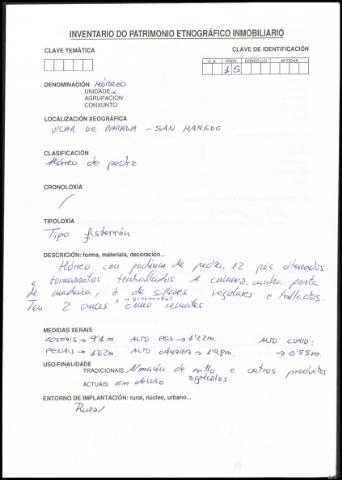 INVENTARIO DO PATRIMONIO ETNOGRÁFICO INMOBILIARIO
CLAVE TEMÁTICA
CLAVE DE IDENTIFICACIÓN
C.A. PROV. CONCELLO Nº FICHA
15
DENOMINACIÓN HÓRREO
UNIDADE x
AGRUPACIÓN:
CONXUNTO:
LOCALIZACIÓN XEOGRÁFICA
VILAR DE PARADA - SAN MAMEDE
CLASIFICACIÓN
Hórreo de pedra
CRONOLOXÍA
/
TIPOLOXÍA
Tipo fisterrán
DESCRICIÓN: forma, materiais, decoración...
Hórreo con de pedra, 12 pés
e tornarratos traballados. A cámara, cunha porta
de madeira, é de sillares regulares e tallados.
Ten 2 cruces e como remates
MEDIDAS XERAIS
COSTAIS → 9'1 m. ALTO PES → 1'22 m. ALTO CUMIO:
PENAIS → 1'62 m. ALTO CÁMARA → 1'98 m. → 0'55 m.
USO/FINALIDADE
TRADICIONAL: Almacén de millo e outros productos
agrícolas
ACTUAIS: en desuso
ENTORNO DE IMPLANTACIÓN: rural, núcleo, urbano...
Rural